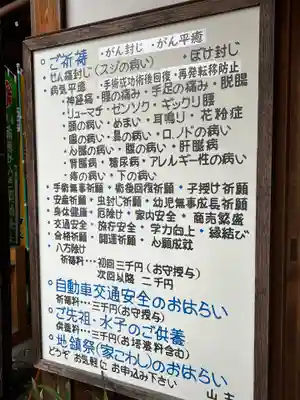 ご祈祷 ・がん封じ・がん平癒
せん痛封じ(スジの病い) ぼけ封じ
病気平癒 ・手術成功術後回復・再発転移防止
・神経痛・腰の痛み・手足の痛み・脱腸
・リューマチ・ゼンソク・ギックリ腰
・頭の病い・めまい・耳鳴り・花粉症
・歯の病い・鼻の病い・口、ノドの病い
・心臓の病い・腹の病い・肝臓病
・腎臓病・糖尿病・アレルギー性の病い
・痔の病い・下の病い
・手術無事祈願・術後回復祈願・子授け祈願
・安産祈願・虫封じ祈願・幼児無事成長祈願
・身体健康・厄除け・家内安全・商売繁盛
・交通安全・旅行安全・学力向上・縁結び
・合格祈願・開運祈願・心願成就
・八方除け
祈祷料・・・初回三千円(お守授与)
次回以降 二千円
自動車交通安全のおはらい
祈祷料・・・三千円(お守授与)
ご先祖・水子のご供養
供養料・・・三千円(お塔婆料含む)
地鎮祭(家こわし)のおはらい
どうぞ お気軽に お申込み下さい
山主